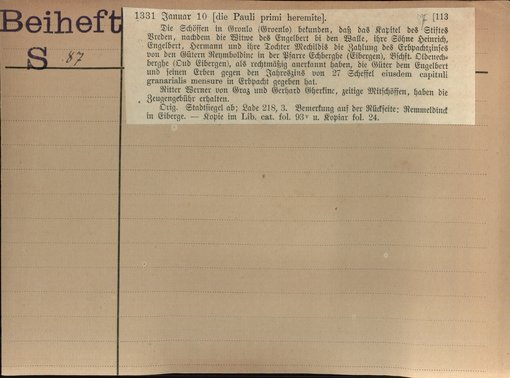 Beiheft
S. 87
1331 Januar 10 [die Pauli primi heremite]. [113
Die Schöffen in Gronlo (Groenlo) bekunden, daß das Kapitel des Stiftes
Vreden, nachdem die Witwe des Engelbert bi den Walle, ihre Söhne Heinrich,
Engelbert, Hermann und ihre Tochter Mechildis die Zahlung des Erbpachtzinses
von den Gütern Reymboldinc in der Pfarre Echberghe (Eibergen), Bschft. Oldenech-
berghe (Oud Eibergen), als rechtmäßig anerkannt haben, die Güter dem Engelbert
und seinen Erben gegen den Jahreszins von 27 Scheffel eiusdem capituli
granarialis mensure in Erbpacht gegeben hat.
Ritter Werner von Graz und Gerhard Gherkinc, zeitige Mitschöffen, haben die
Zeugengebühr erhalten.
Orig. Stadtsiegel ab; Lade 218, 3. Bemerkung auf der Rückseite: Remmeldinck
in Eiberge. — Kopie im Lib. cat. fol. 93v u. Kopiar fol. 24.